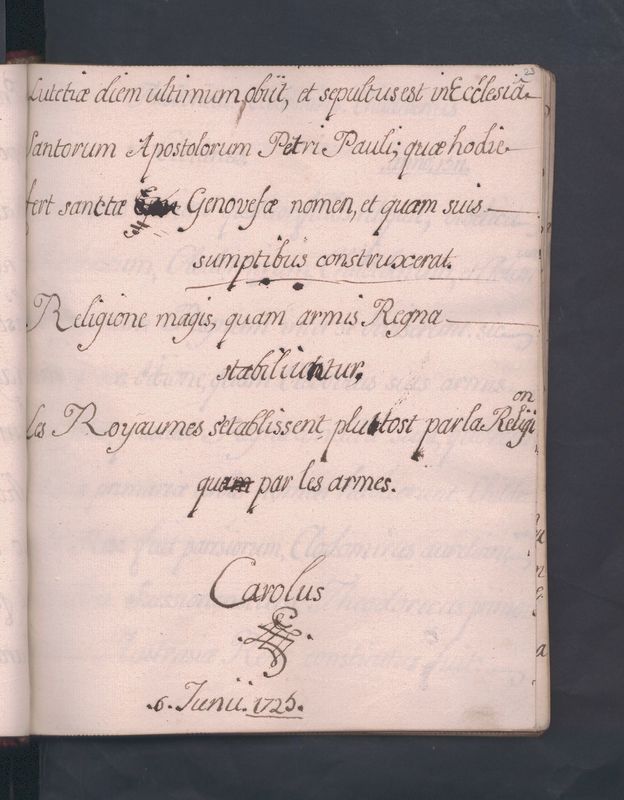 23
Lutetiæ diem ultimum obiit, et sepultus est in Ecclesiâ
Santorum Apostolorum Petri Pauli; quæ hodie
fert sanctæ Genovefæ nomen, et quam suis
sumptibus construxerat.
Religione magis, quam armis Regna
stabiliuntur.
Les Royaumes s'etablissent pluttost par la Religi
on
quam par les armes.
Carolus
6. Junii. 1725.